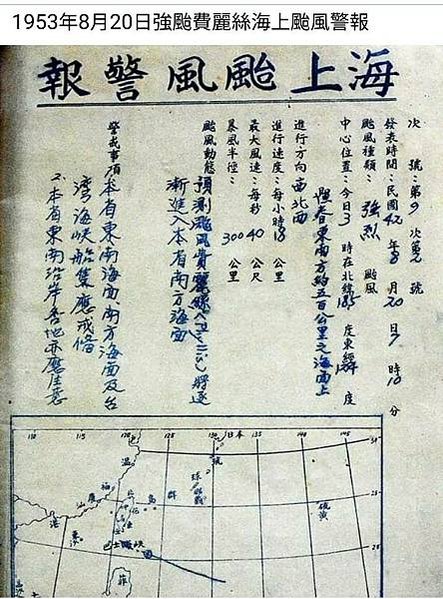 1953年8月20日強颱費麗絲海上颱風警報
海上颱風警報
次號:第9次第2號
發表時間:民國42年8月20日7時10分
颱風種類:強烈颱風
中心位置:今日3時在北緯18.5度東經度
恆春東南方約五百公里之海面上
進行方向西北西
進行速度:每小時18公里
最大風速:每秒40公尺
暴風半徑:300公里
颱風動態預測颱風費麗絲(Phyllis)將逐
漸進入本省南方海面
警戒事項本省東南海面南方海面及台
灣海峽船隻應戒備
2.本省東南沿岸各地亦應注意
110 115 120 125 130 日本 135 140 145
溫
福
廈
汕
港
琉
球
群
島
硫
黃
25
20
巴士海峽
菲